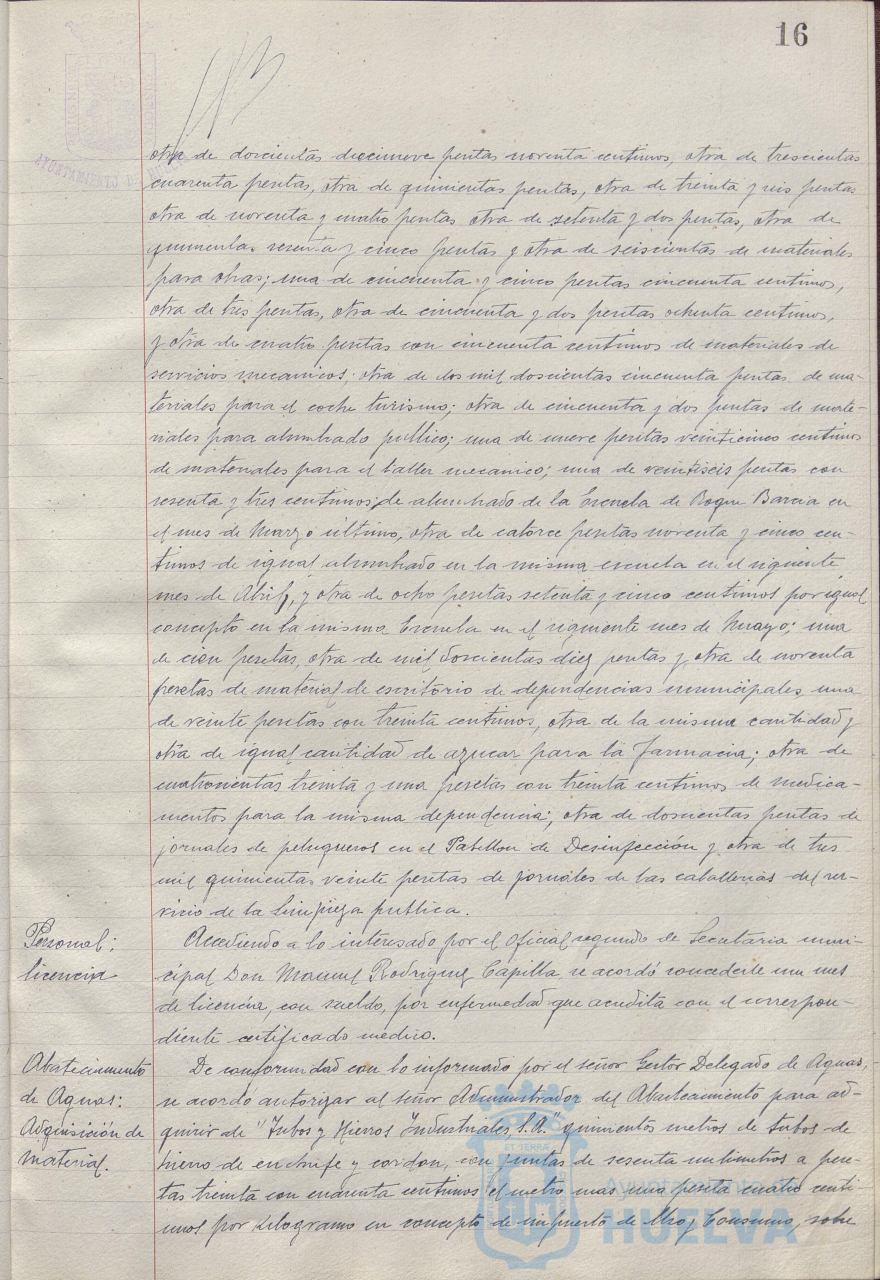 16
AYUNTAMIENTO DE HUELVA
otra de doscientas diecinueve pesetas noventa centimos, otra de trescientas
cuarenta pesetas, otra de quinientas pesetas, otra de treinta y seis pesetas
otra de noventa y cuatro pesetas otra de setenta y dos pesetas, otra de
quinientas sesenta y cinco pesetas y otra de seiscientas de materiales
para obras; una de cincuenta y cinco pesetas cincuenta centimos,
otra de tres pesetas, otra de cincuenta y dos pesetas ochenta centimos,
y otra de cuatro pesetas con cincuenta centimos de materiales de
servicios mecanicos; otra de dos mil doscientas cincuenta pesetas de ma-
teriales para el coche turismo; otra de cincuenta y dos pesetas de mate-
riales para alumbrado publico; una de nueve pesetas veinticinco centimos
de materiales para el taller mecanico; una de veintiseis pesetas con
sesenta y tres centimos; de alumbrado de la Escuela de Roque Barcia en
el mes de Marzo último, otra de catorce pesetas noventa y cinco cen-
timos de igual alumbrado en la misma escuela en el siguiente
mes de Abril, y otra de ocho pesetas setenta y cinco centimos por igual
concepto en la misma Escuela en el siguiente mes de Mayo; una
de cien pesetas, otra de mil doscientas diez pesetas y otra de noventa
pesetas de material de escritorio de dependencias municipales, una
de veinte pesetas con treinta centimos, otra de la misma cantidad y
otra de igual cantidad de azucar para la farmacia; otra de
cuatrocientas treinta y una pesetas con treinta centimos de medica-
mentos para la misma dependencia; otra de doscientas pesetas de
jornales de peluqueros en el Pabellon de Desinfección y otra de tres
mil quinientas veinte pesetas de jornales de las caballerias del ser-
vicio de la limpieza publica.
Personal:
licencia
Accediendo a lo interesado por el oficial segundo de Secretaria muni-
cipal Don Manuel Rodriguez Capilla se acordó concederle un mes
de licencia, con sueldo, por enfermedad que acredita con el correspon-
diente certificado medico.
Abastecimiento
de Aguas:
Adquisición de
material.
De conformidad con lo informado por el señor Gestor Delegado de Aguas,
se acordó autorizar al señor Administrador del Abastecimiento para ad-
quirir de "Tubos y Hierros Industriales S.A." quinientos metros de tubos de
hierro de enchufe y cordon, con juntas de sesenta milimetros a pese-
tas treinta con cuarenta centimos el metro mas una peseta cuatro centi
mos por kilogramo en concepto de impuesto de Uso y Consumo, sobre
Ayuntamiento de
HUELVA